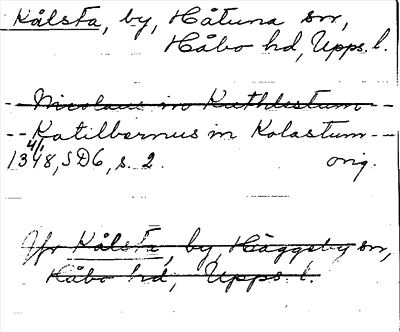 Kålsta, by, Håtuna sn,
Håbo hd, Upps. l.
-- Nicolaus in Kathlestum --
-- Katilbernus in Kolastum --
1348 4/1, SD6, s. 2. orig.
Jfr Kålsta, by, Häggeby sn,
Håbo hd, Upps. l.